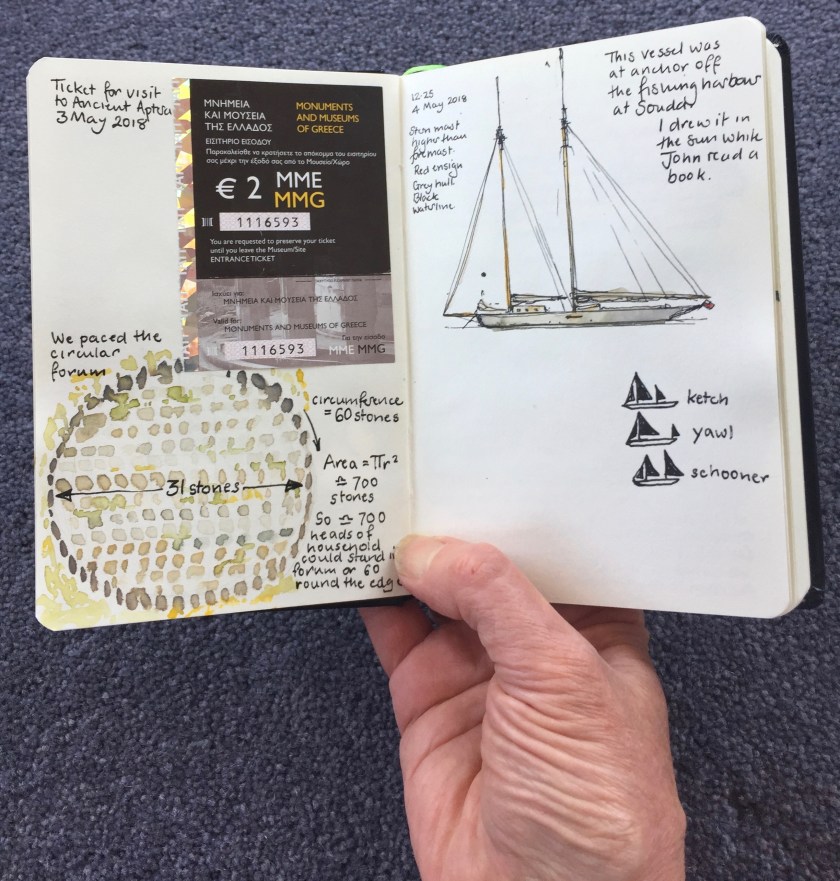 Ticket for visit
to Ancient Aptera
3 May 2018
ΜΝΗΜΕΙΑ
ΚΑΙ ΜΟΥΣΕΙΑ
ΤΗΣ ΕΛΛΑΔΟΣ
MONUMENTS
AND MUSEUMS
OF GREECE
ΕΙΣΙΤΗΡΙΟ ΕΙΣΟΔΟΥ
Παρακαλείσθε να κρατήσετε το απόκομμα του εισιτηρίου
σας μέχρι την έξοδό σας από το Μουσείο/Χώρο
€ 2 MME
MMG
1116593
You are requested to preserve your ticket
until you leave the Museum/Site
ENTRANCE TICKET
Ισχύει για:
ΜΝΗΜΕΙΑ ΚΑΙ ΜΟΥΣΕΙΑ ΤΗΣ ΕΛΛΑΔΟΣ
Valid for:
MONUMENTS AND MUSEUMS OF GREECE
Για την είσοδο
1116593 MME MMG
We paced the
circular
forum
circumference
= 60 stones
31 stones
Area = πr²
≏ 700
stones
So ≏ 700
heads of
household
could stand in
forum or 60
round the edge
12.25
4 May 2018
Stern mast
higher than
foremast.
Red ensign
Grey hull
Black
waterline
This vessel was
at anchor off
the fishing harbour
at Souda
I drew it in
the sun while
John read a
book.
ketch
yawl
schooner